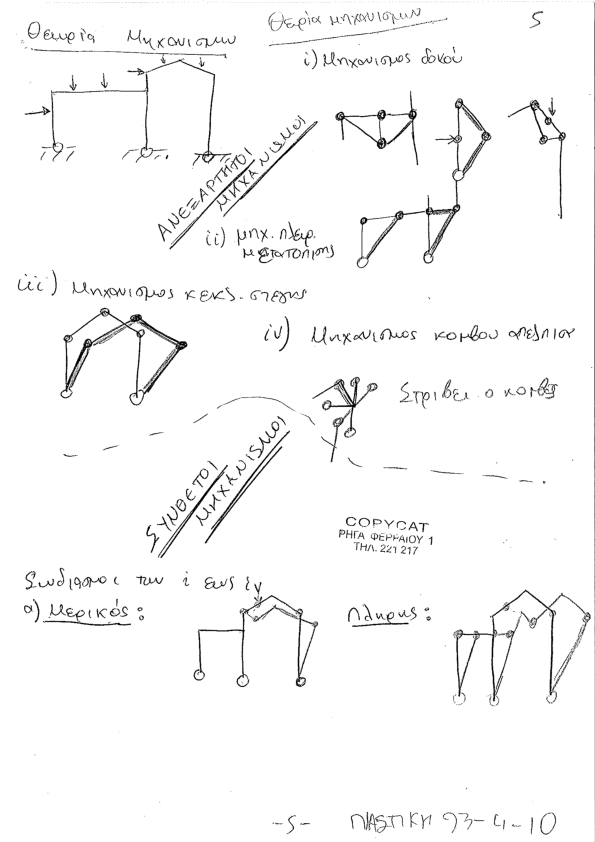 Θεωρία Μηχανισμών
Θεωρία μηχανισμών
5
i) Μηχανισμος δοκού
ΑΝΕΞΑΡΤΗΤΟΙ
ΜΗΧΑΝΙΣΜΟΙ
ii) μηχ. πλευρ.
μετατοπισης
iii) Μηχανισμος κεκλ. στεγης
iv) Μηχανισμος κομβου
Στριβει ο κομβος
ΣΥΝΘΕΤΟΙ
ΜΗΧΑΝΙΣΜΟΙ
COPYCAT
ΡΗΓΑ ΦΕΡΡΑΙΟΥ 1
ΤΗΛ. 221 217
Συνδιασμοι των i εως iv
α) Μερικός:
Πληρης:
-5- ΠΛΑΣΤΙΚΗ 93-4-10